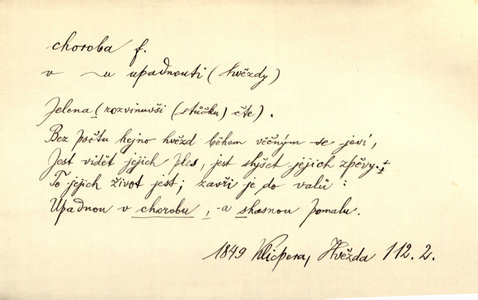 choroba f.
v ~u upadnouti (hvězdy)
Jelena (rozvinuvši (stůčku) čte).
Bez počtu hejno hvězd během věčným se jeví,
Jest vidět jejich ples, jest slyšet jejich zpěvy;
To jejich život jest; zavři je do valů:
Upadnou v chorobu, a skasnou pomalu.
1849 Klicpera, Hvězda 112.2.